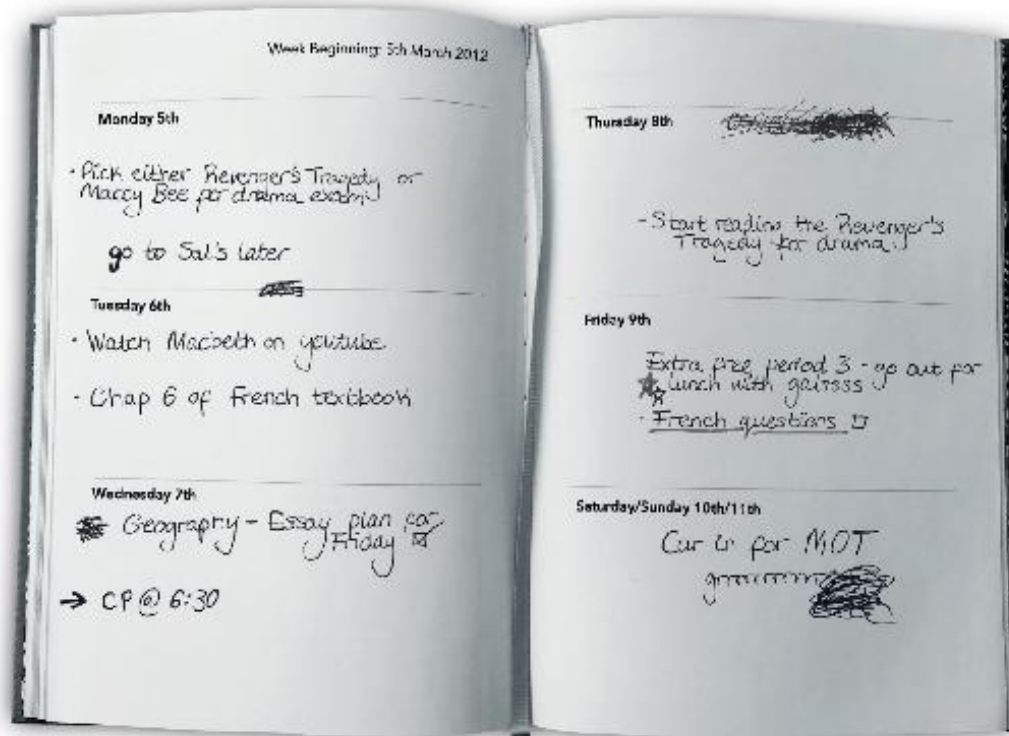 Week Beginning: 5th March 2012
Monday 5th
· Pick either Revenger's Tragedy or
Marcy Bee for drama exam
go to Sal's later
Tuesday 6th
· Watch Macbeth on youtube
· Chap 6 of French textbook
Wednesday 7th
Geography - Essay plan for
Friday
→ CP @ 6:30
Thursday 8th
- Start reading the Revenger's
Tragedy for drama
Friday 9th
Extra free period 3 - go out for
lunch with
· French questions
Saturday/Sunday 10th/11th
Car in for MOT